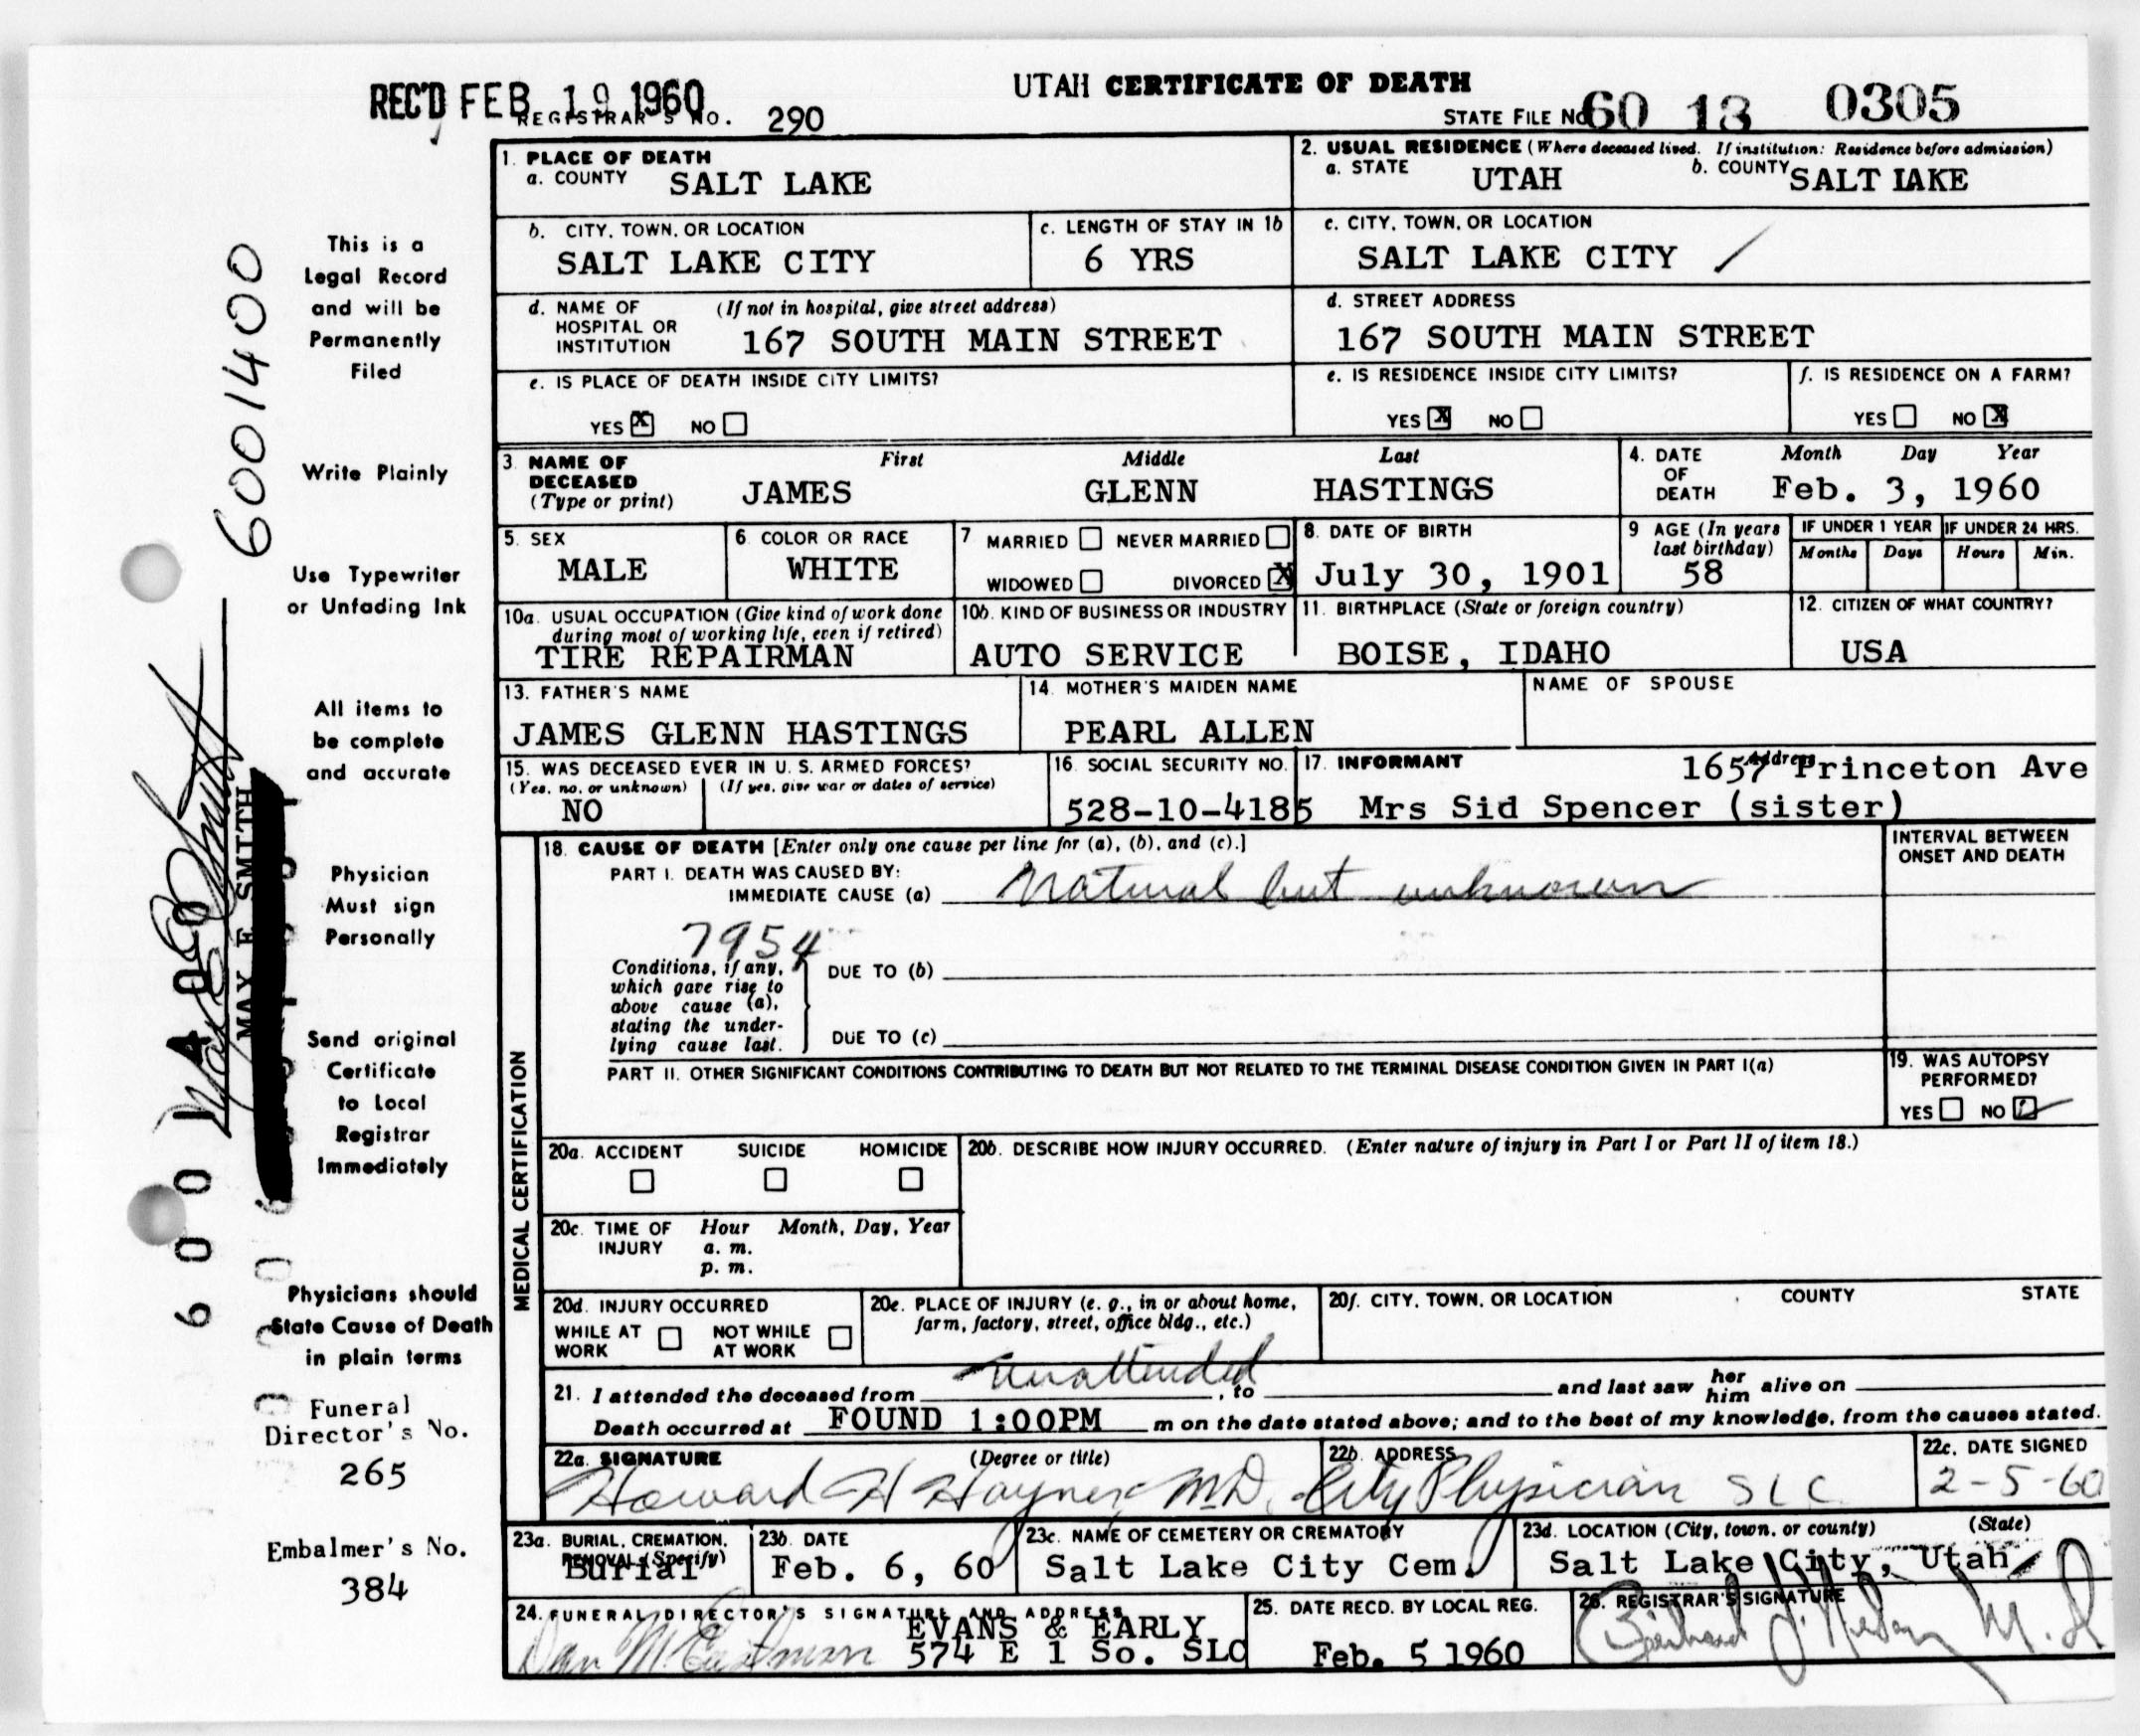 REC'D FEB 19 1960
UTAH CERTIFICATE OF DEATH
REGISTRAR'S NO. 290
STATE FILE NO. 60 13 0305
1. PLACE OF DEATH
a. COUNTY SALT LAKE
2. USUAL RESIDENCE (Where deceased lived. If institution: Residence before admission)
a. STATE UTAH b. COUNTY SALT LAKE
b. CITY, TOWN, OR LOCATION
SALT LAKE CITY
c. LENGTH OF STAY IN 1b
6 YRS
c. CITY, TOWN, OR LOCATION
SALT LAKE CITY
d. NAME OF HOSPITAL OR INSTITUTION (If not in hospital, give street address)
167 SOUTH MAIN STREET
d. STREET ADDRESS
167 SOUTH MAIN STREET
e. IS PLACE OF DEATH INSIDE CITY LIMITS?
YES X NO
e. IS RESIDENCE INSIDE CITY LIMITS?
YES X NO
f. IS RESIDENCE ON A FARM?
YES NO X
3. NAME OF DECEASED (Type or print)
First Middle Last
JAMES GLENN HASTINGS
4. DATE OF DEATH Month Day Year
Feb. 3, 1960
5. SEX
MALE
6. COLOR OR RACE
WHITE
7 MARRIED NEVER MARRIED
WIDOWED DIVORCED X
8. DATE OF BIRTH
July 30, 1901
9 AGE (In years last birthday)
58
IF UNDER 1 YEAR
Months Days
IF UNDER 24 HRS.
Hours Min.
10a. USUAL OCCUPATION (Give kind of work done
during most of working life, even if retired)
TIRE REPAIRMAN
10b. KIND OF BUSINESS OR INDUSTRY
AUTO SERVICE
11. BIRTHPLACE (State or foreign country)
BOISE, IDAHO
12. CITIZEN OF WHAT COUNTRY?
USA
13. FATHER'S NAME
JAMES GLENN HASTINGS
14. MOTHER'S MAIDEN NAME
PEARL ALLEN
NAME OF SPOUSE
15. WAS DECEASED EVER IN U. S. ARMED FORCES?
(Yes, no, or unknown) (If yes, give war or dates of service)
NO
16. SOCIAL SECURITY NO.
528-10-4185
17. INFORMANT Address
1657 Princeton Ave
Mrs Sid Spencer (sister)
MEDICAL CERTIFICATION
18. CAUSE OF DEATH [Enter only one cause per line for (a), (b), and (c).]
INTERVAL BETWEEN
ONSET AND DEATH
PART I. DEATH WAS CAUSED BY:
IMMEDIATE CAUSE (a) Natural but unknown
7954
Conditions, if any,
which gave rise to
above cause (a),
stating the under-
lying cause last.
DUE TO (b)
DUE TO (c)
PART II. OTHER SIGNIFICANT CONDITIONS CONTRIBUTING TO DEATH BUT NOT RELATED TO THE TERMINAL DISEASE CONDITION GIVEN IN PART I(a)
19. WAS AUTOPSY
PERFORMED?
YES NO
20a. ACCIDENT SUICIDE HOMICIDE
20b. DESCRIBE HOW INJURY OCCURRED. (Enter nature of injury in Part I or Part II of item 18.)
20c. TIME OF INJURY Hour Month, Day, Year
a. m.
p. m.
20d. INJURY OCCURRED
WHILE AT WORK NOT WHILE AT WORK
20e. PLACE OF INJURY (e. g., in or about home,
farm, factory, street, office bldg., etc.)
20f. CITY, TOWN, OR LOCATION COUNTY STATE
21. I attended the deceased from unattended, to and last saw her him alive on
Death occurred at FOUND 1:00PM m on the date stated above; and to the best of my knowledge, from the causes stated.
22a. SIGNATURE (Degree or title)
Howard H Hayner MD.
22b. ADDRESS
City Physician SLC
22c. DATE SIGNED
2-5-60
23a. BURIAL, CREMATION,
REMOVAL (Specify)
Burial
23b. DATE
Feb. 6, 60
23c. NAME OF CEMETERY OR CREMATORY
Salt Lake City Cem.
23d. LOCATION (City, town, or county) (State)
Salt Lake City, Utah
24. FUNERAL DIRECTOR'S SIGNATURE AND ADDRESS
EVANS & EARLY
574 E 1 So. SLC
25. DATE RECD. BY LOCAL REG.
Feb. 5 1960
26. REGISTRAR'S SIGNATURE
This is a
Legal Record
and will be
Permanently
Filed
Write Plainly
Use Typewriter
or Unfading Ink
All items to
be complete
and accurate
Physician
Must sign
Personally
Send original
Certificate
to Local
Registrar
Immediately
Physicians should
State Cause of Death
in plain terms
Funeral
Director's No.
265
Embalmer's No.
384
6001400
MAY E SMITH